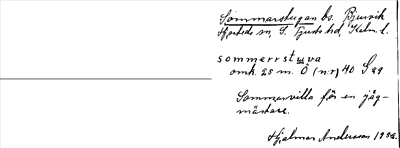 Sommarstugan bs. Bjurvik
Hjorteds sn, S. Tjusts hd, Kalm. l.
sommarrstuva
omkr. 25 m. Ö (n.r) 40 S 29
Sommarvilla för en jäg-
mästare.
Hjalmar Andersson 1936.